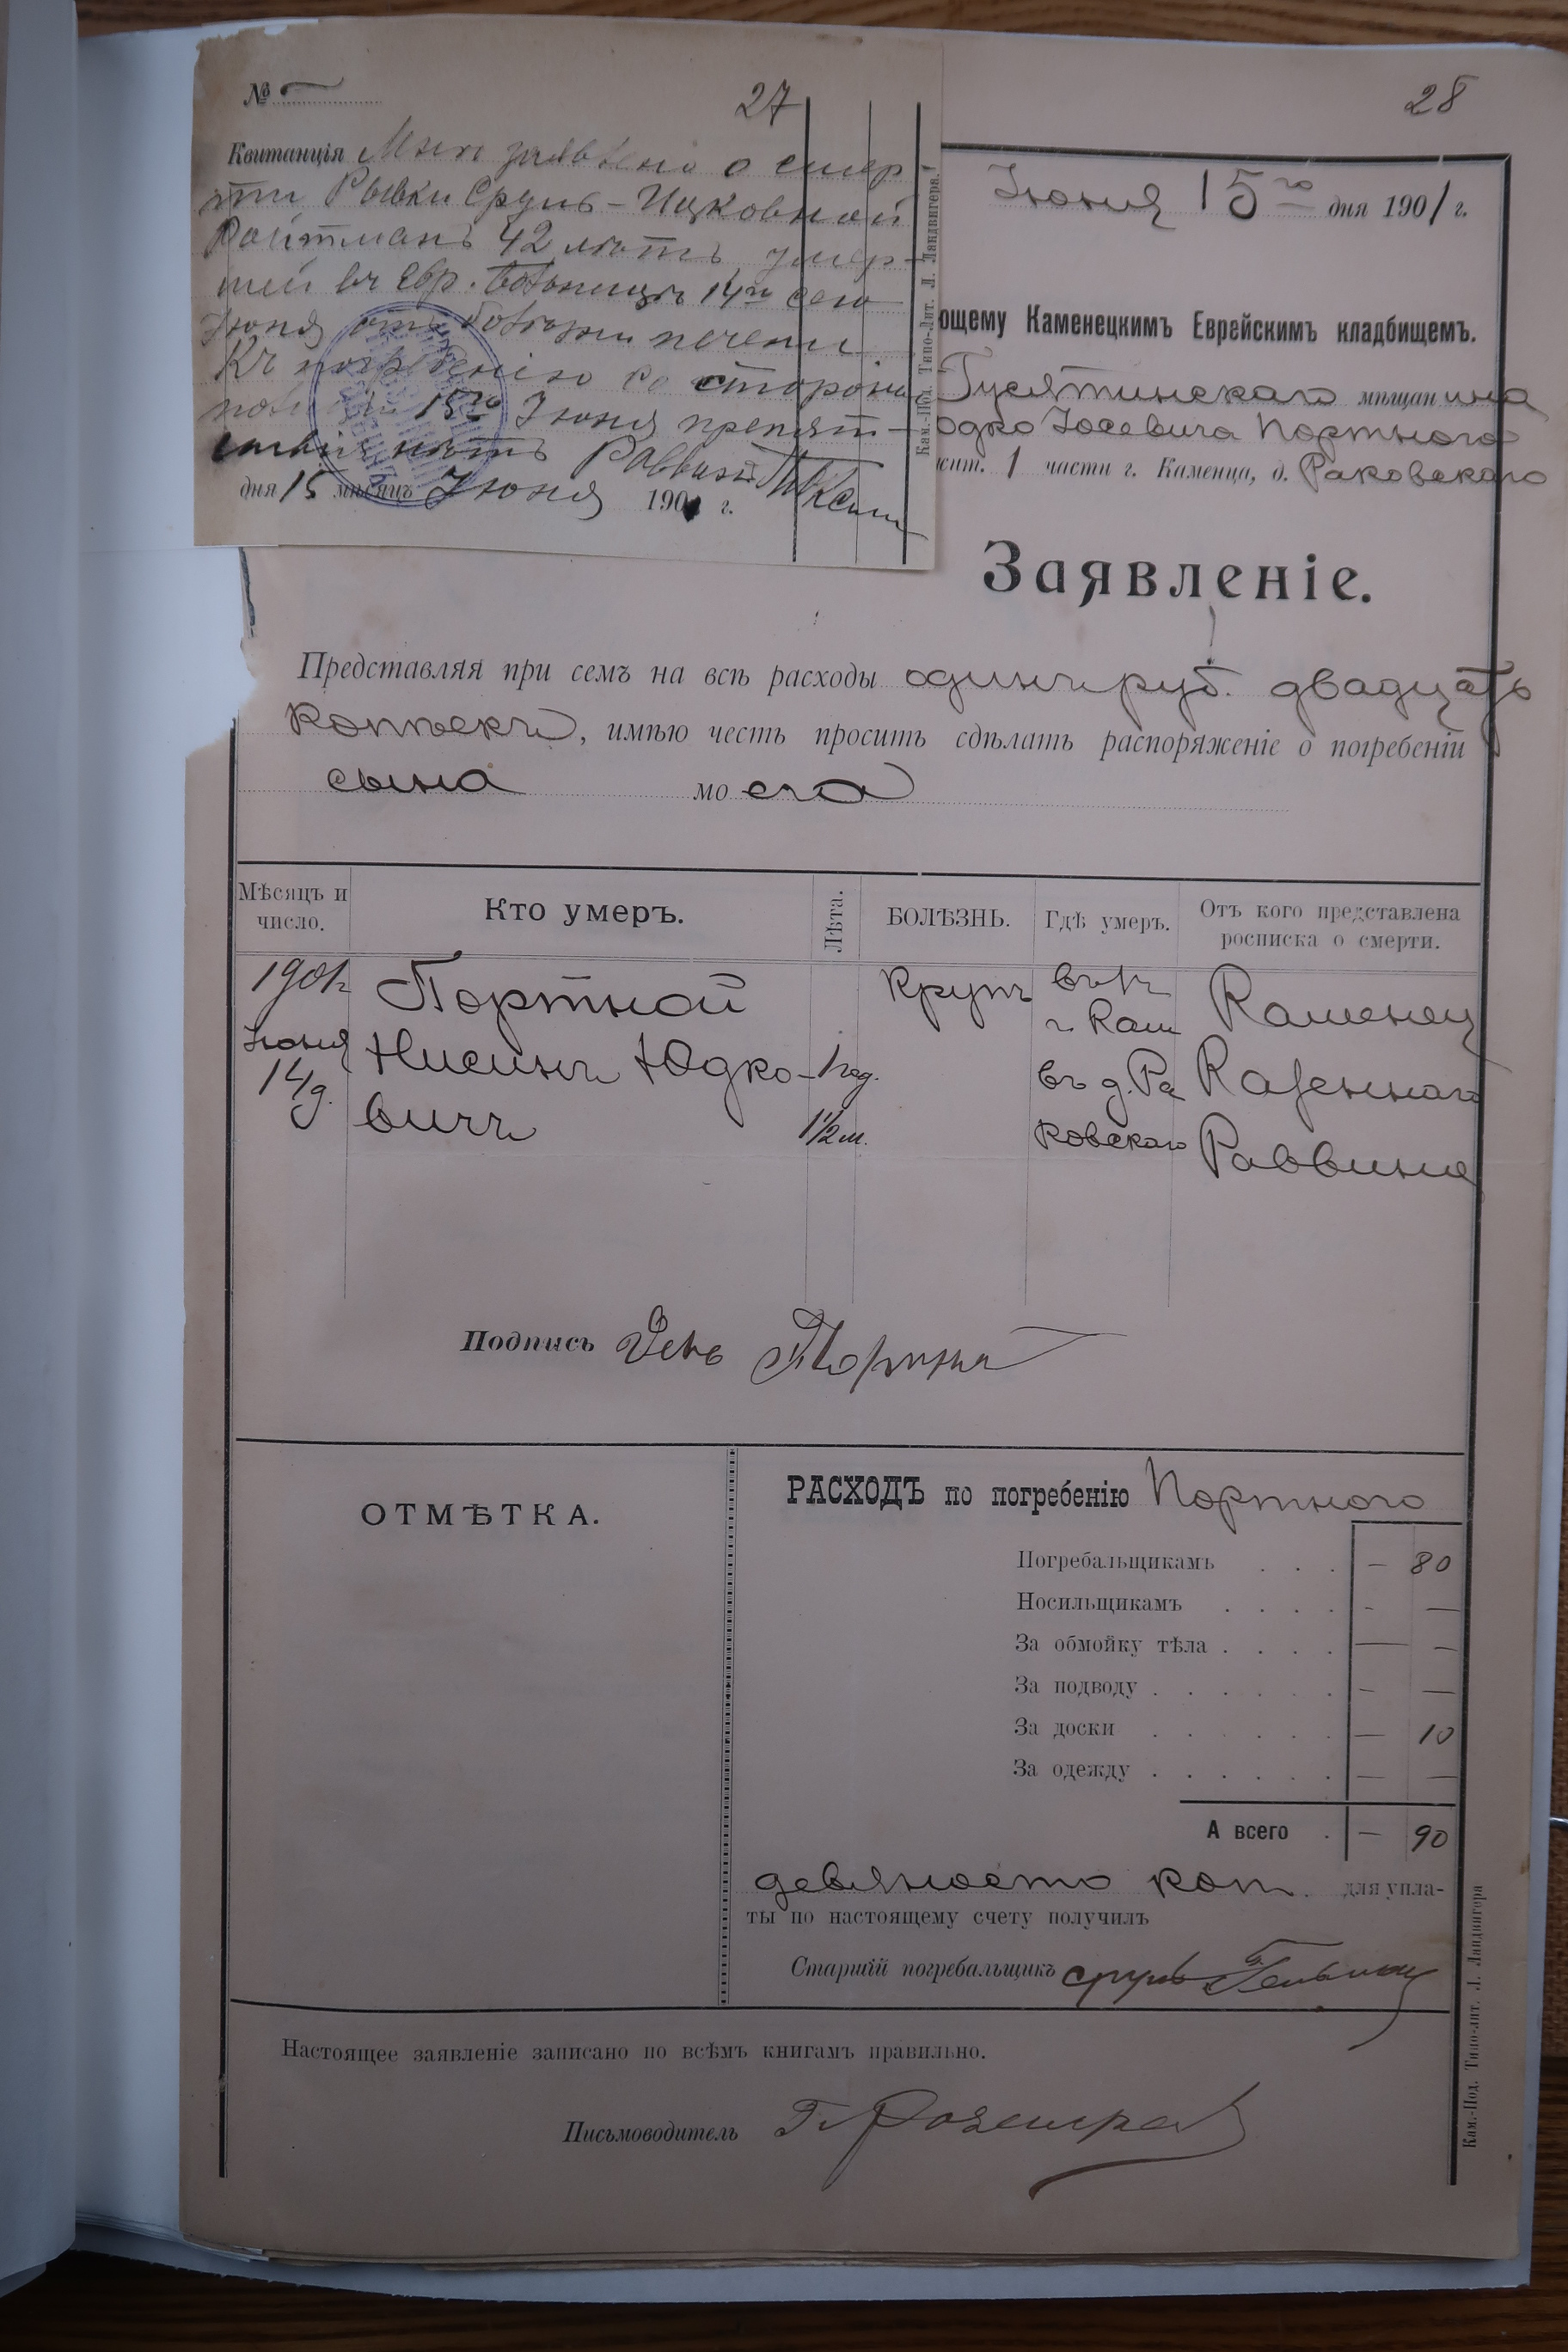 №
27
Квитанція Мнѣ заявлено о смер
ти Рывки Сруль-Ицковной
Ройтманъ 42 лѣтъ умер-
шей въ Евр. больницѣ 14го сего
Іюня отъ болѣзни печени.
Къ погребенію со стороны
15го Іюня препят-
ствій нѣтъ Раввинъ
дня 15 мѣсяцъ Іюня 1901 г.
Кам.-Под. Типо-Лит. Л. Ландвигера.
28
Іюня 15го дня 1901 г.
ющему Каменецкимъ Еврейскимъ кладбищемъ.
Гусятинскаго мѣщанина
юдко Іосевича Портного
жит. 1 части г. Каменца, д. Раковскаго
Заявленіе.
Представляя при семъ на всѣ расходы одинъ руб. двадцать
копѣекъ, имѣю честь просить сдѣлать распоряженіе о погребеніи
сына моего
Мѣсяцъ и число. Кто умеръ. Лѣта. БОЛѢЗНЬ. Гдѣ умеръ. Отъ кого представлена росписка о смерти.
1901г Портной Крупъ въ г. Кам Каменец
Іюня Нисинъ Юдко- 1 год. въ д. Ра Казеннаго
14д. вичъ 1 1/2 м. ковскаго Раввина
Подпись
ОТМѢТКА.
РАСХОДЪ по погребенію Портного
Погребальщикамъ . . . — 80
Носильщикамъ . . . . - —
За обмойку тѣла . . . . — —
За подводу . . . . . . - —
За доски . . . . . . — 10
За одежду . . . . . . — —
А всего . — 90
девяносто коп. для упла-
ты по настоящему счету получилъ
Старшій погребальщикъ сруль Гельман
Настоящее заявленіе записано по всѣмъ книгамъ правильно.
Письмоводитель
Кам.-Под. Типо-лит. Л. Ландвигера